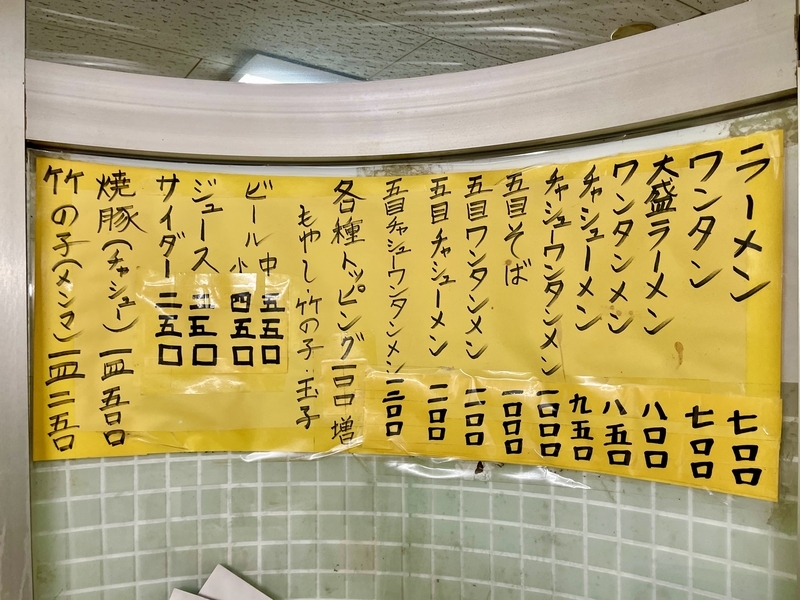 ラーメン 七〇〇
ワンタン 七〇〇
大盛ラーメン 八〇〇
ワンタンメン 八五〇
チャシューメン 九五〇
チャシューワンタンメン 一〇〇〇
五目そば 一〇〇〇
五目ワンタンメン 一一〇〇
五目チャシューメン 一一〇〇
五目チャシューワンタンメン 一二〇〇
各種トッピング 一〇〇 増
もやし・竹の子・玉子
ビール 中 五五〇
小 四五〇
ジュース 二五〇
サイダー 二五〇
焼豚(チャシュー) 一皿 五〇〇
竹の子(メンマ) 一皿 二五〇